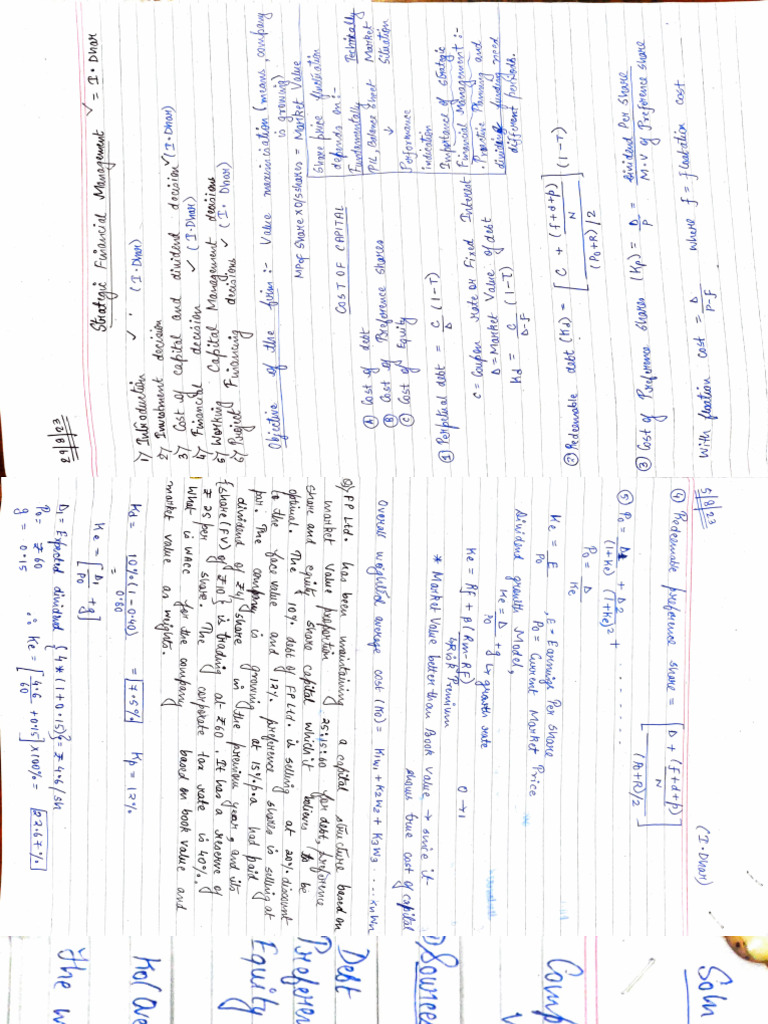 26/8/23
Strategic Financial Management ✓ = I. Dhar
1) Introduction ✓ (I. Dhar)
2) Investment decision
3) Cost of capital and dividend decision ✓ (I. Dhar)
4) Financial decision ✓ (I. Dhar)
5) Working Capital Management decisions
6) Project Financing decisions ✓ (I. Dhar)
Objective of the firm :- Value maximisation (means, company is growing)
MP of share x o/s shares = Market Value
Share price fluctuation
depends on:-
Fundamentally Technically
P/L, Balance Sheet Market
↓ Situation
Performance
indication
Importance of strategic
Financial Management :-
• Proactive Planning and
funding need
different periods.
COST OF CAPITAL
(A) Cost of debt
(B) Cost of Preference shares
(C) Cost of Equity
(1) Perpetual debt = C/D (1-T)
C = Coupon rate or Fixed Interest
D = Market Value of debt
Kd = C/D-F (1-T)
(2) Redeemable debt (Kd) = [C + (f+d+p)/N / (P0+R)/2] (1-T)
(3) Cost of Preference shares (Kp) = D/P = Dividend Per Share / M.V of Preference share
With floation cost = D/P-F where f = floatation cost
5/8/23
(I. Dhar)
(4) Redeemable preference share = [D + (f+d+p)/N / (P0+R)/2]
(5) P0 = D1/(1+Ke) + D2/(1+Ke)2 + .......
P0 = D/Ke
Ke = E/P0 , E = Earnings Per share
P0 = Current Market Price
Dividend growth Model,
Ke = D/P0 + g ↳ growth rate
Ke = Rf + β (Rm - RF) 0 → 1
Premium
* Market Value better than Book Value → since it
shows true cost of capital
Overall weighted average cost (Ko) = K1W1 + K2W2 + K3W3 .... KnWn
Q) FP Ltd. has been maintaining a capital structure based on
market value proportion of 25:15:60 for debt, preference
share and equity share capital which it believes to be
optimal. The 10% debt of FP Ltd. is selling at 20% discount
to the face value and 12% preference shares is selling at
par. The company is growing at 15% p.a had paid
dividend of ₹4/share in the previous year, and its
share (FV) of ₹10 is trading at ₹60. It has a reserve of
₹25 per share. The corporate tax rate is 40%.
What is WACC for the company based on book value and
market value as weights.
Kd = 10%(1-0.40)/0.80 = 7.5% Kp = 12%
Ke = [D1/P0 + g]
D1 = Expected dividend {4*(1+0.15)} = ₹4.6/sh
P0 = ₹60
g = 0.15 ∴ Ke = [4.6/60 + 0.15] x 100% = 22.67%
Soln
Comp
Sources
Debt
Preferen
Equity
Ko/
The w